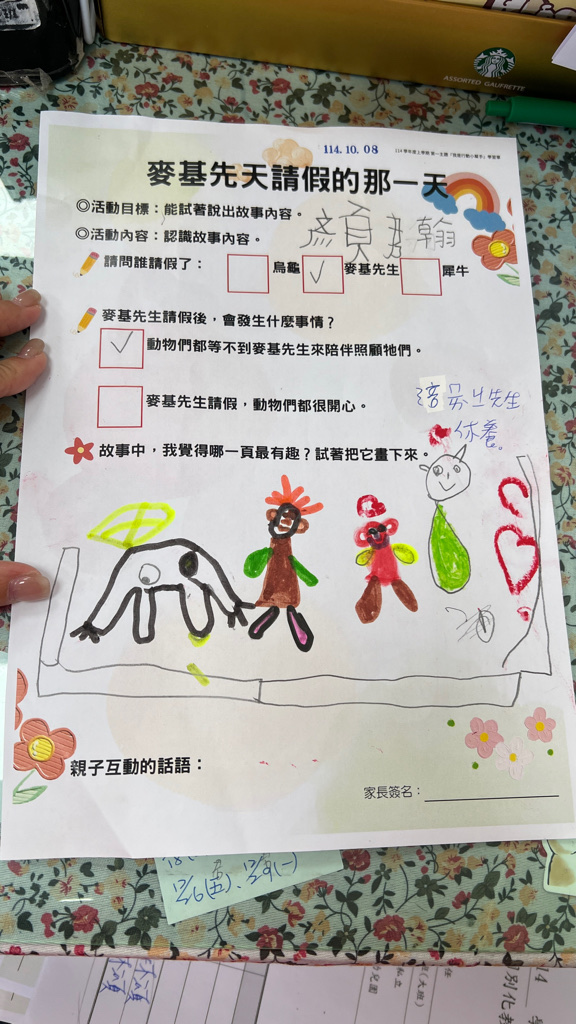 ASSORTED GAUFRETTE
114.10.08
麥基先天請假的那一天
◎活動目標：能試著說出故事內容。
◎活動內容：認識故事內容。
請問誰請假了： 烏龜 麥基先生 犀牛
麥基先生請假後，會發生什麼事情？
動物們都等不到麥基先生來陪伴照顧牠們。
麥基先生請假，動物們都很開心。
故事中，我覺得哪一頁最有趣？試著把它畫下來。
先生
休養。
親子互動的話語：
家長簽名：
12/6(五)、12/9(一)